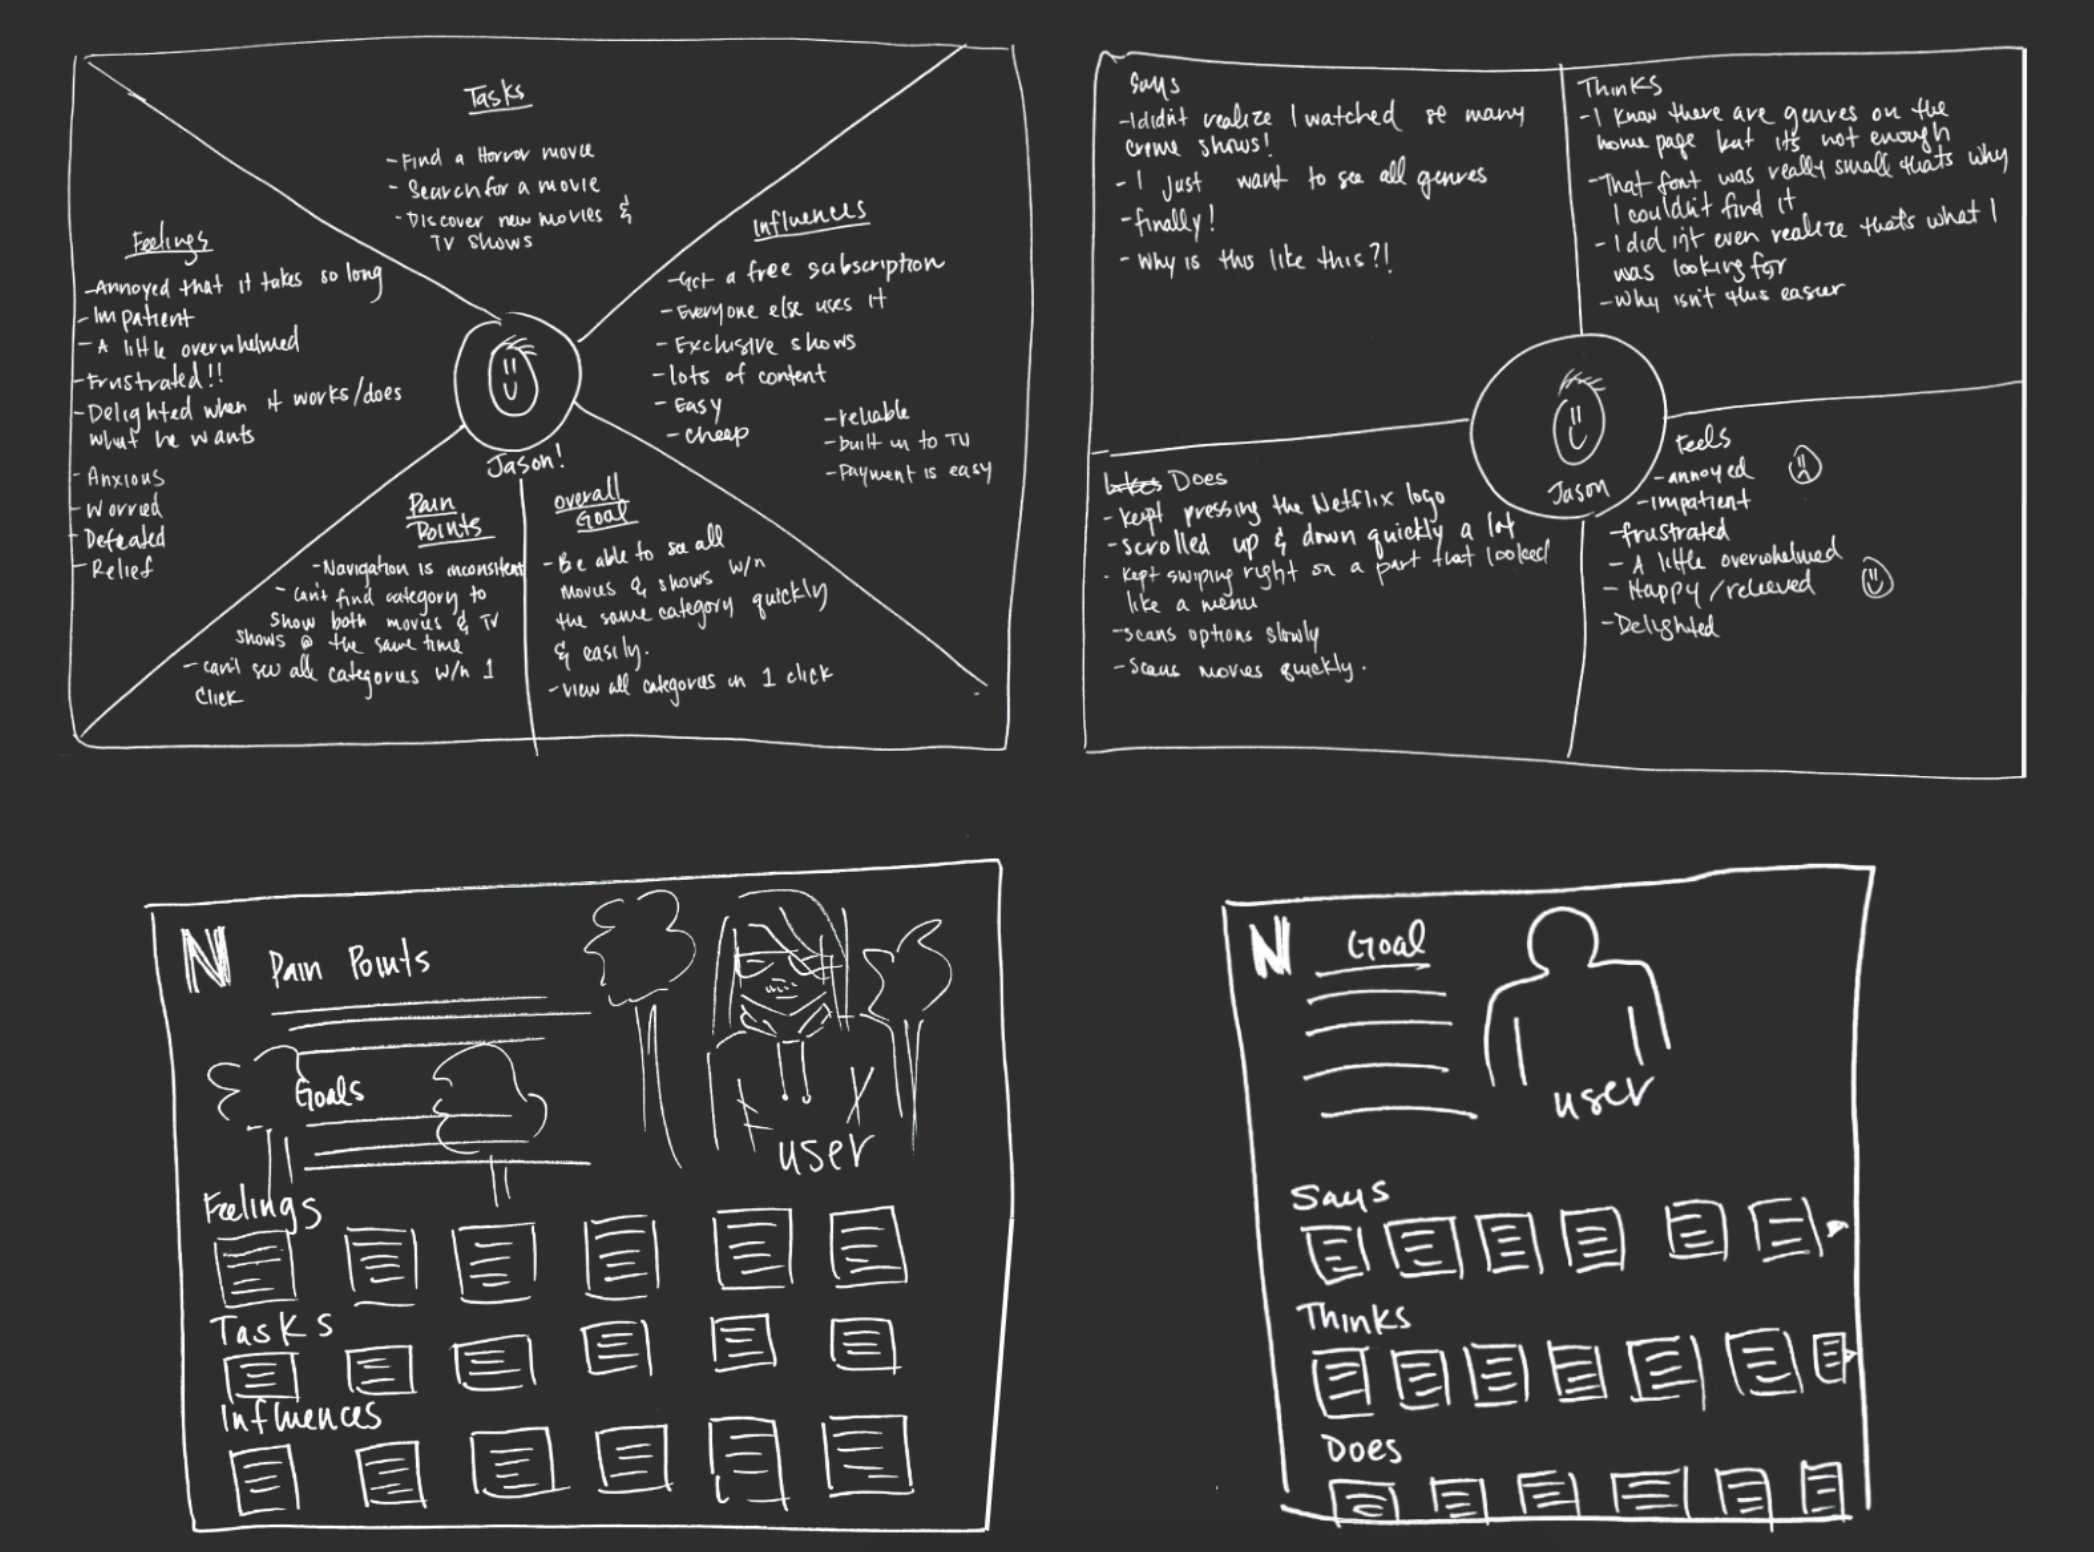 Tasks
- Find a Horror movie
- Search for a movie
- Discover new movies &
TV shows
Feelings
- Annoyed that it takes so long
- Impatient
- A little overwhelmed
- Frustrated!!
- Delighted when it works/does
what he wants
- Anxious
- Worried
- Defeated
- Relief
Influences
- Get a free subscription
- Everyone else uses it
- Exclusive shows
- lots of content
- Easy
- cheap
- reliable
- built in to TV
- Payment is easy
Jason!
Pain
Points
- Navigation is inconsistent
- can't find category to
show both movies & TV
shows @ the same time
- can't see all categories w/n 1
click
overall
Goal
- Be able to see all
movies & shows w/n
the same category quickly
& easily.
- view all categories in 1 click
Says
- I didn't realize I watched so many
crime shows!
- I just want to see all genres
- finally!
- Why is this like this?!
Thinks
- I know there are genres on the
home page but it's not enough
- That font was really small thats why
I couldn't find it
- I didn't even realize thats what I
was looking for
- Why isn't this easier
Jason
Does
- Kept pressing the Netflix logo
- scrolled up & down quickly a lot
- kept swiping right on a part that looked
like a menu
- scans options slowly
- Scans movies quickly.
Feels
- annoyed
- impatient
- frustrated
- A little overwhelmed
- Happy/relieved
- Delighted
N Pain Points
Goals
user
Feelings
Tasks
Influences
N Goal
user
Says
Thinks
Does